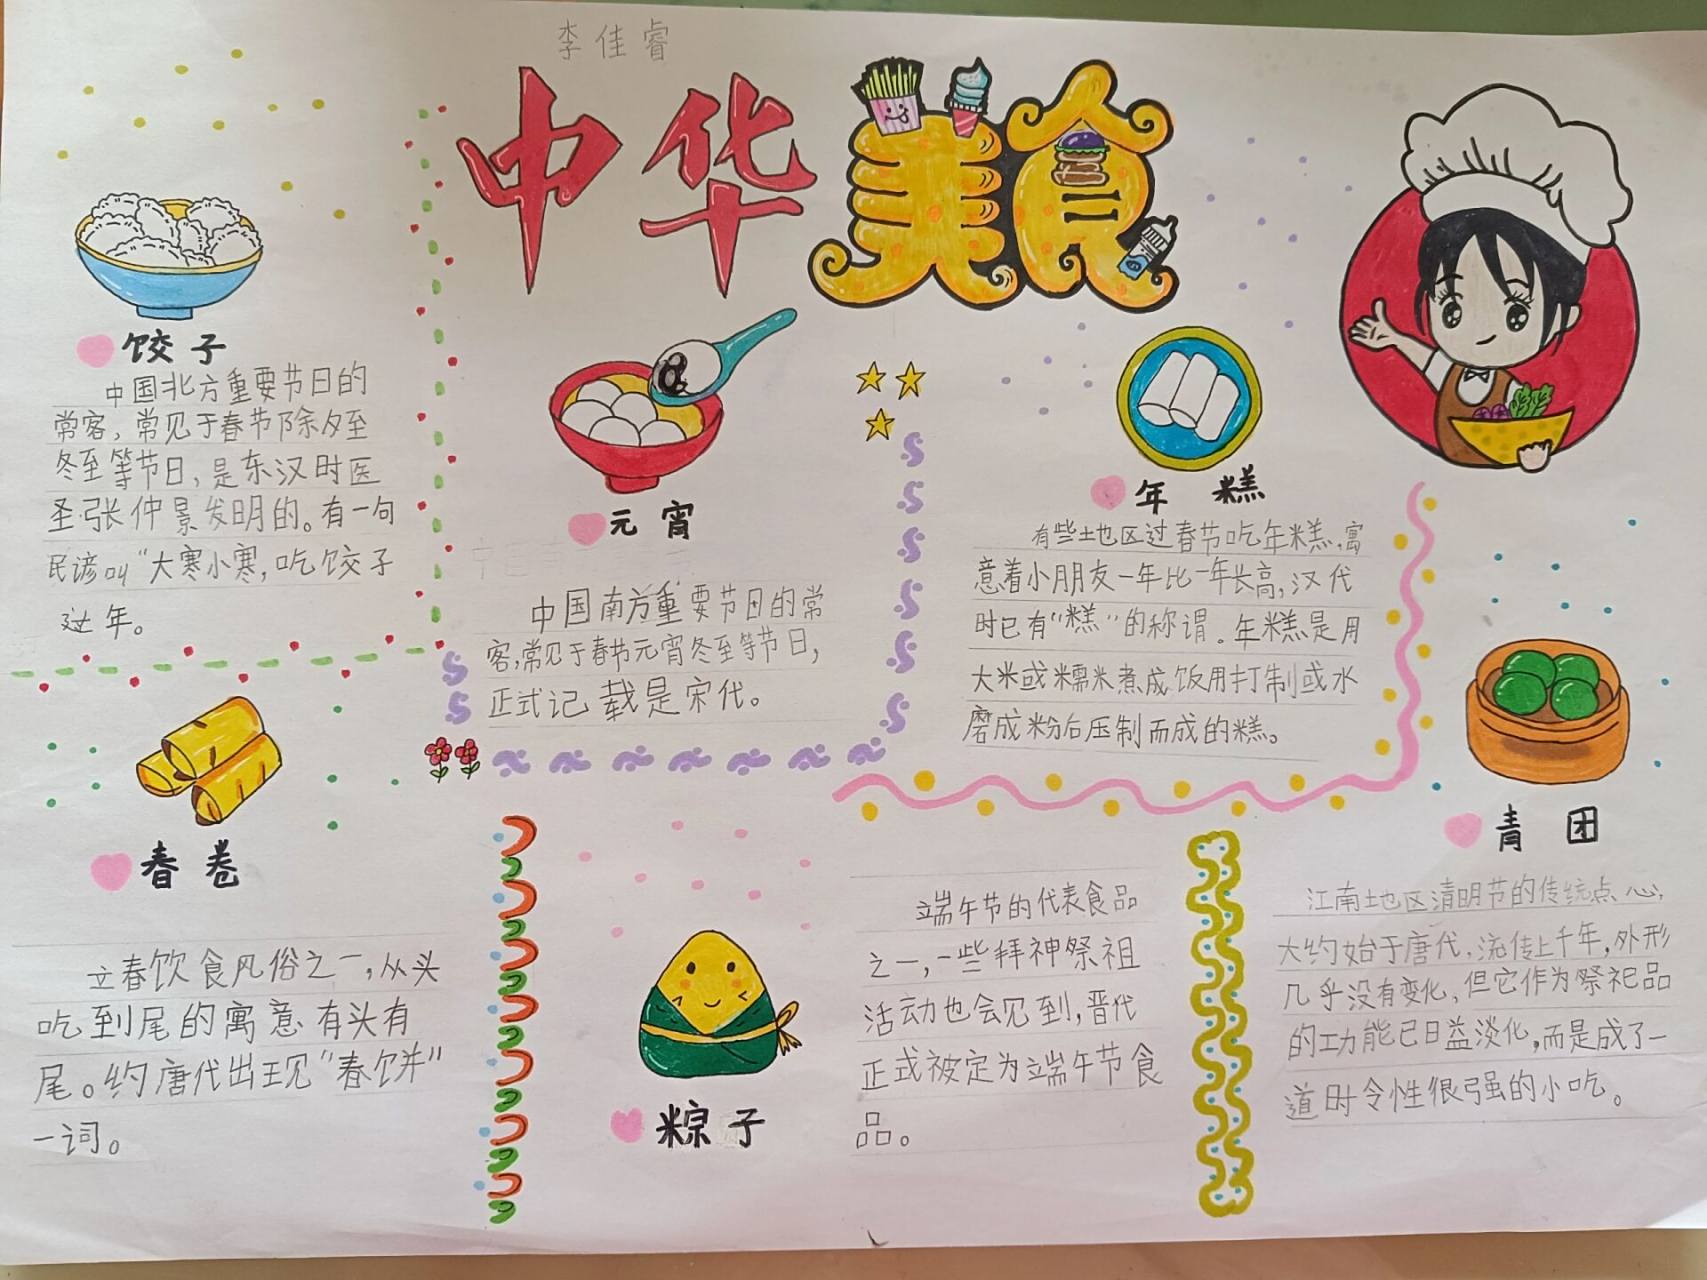 李佳睿
中华美食
饺子
中国北方重要节日的
常客，常见于春节除夕至
冬至等节日，是东汉时医
圣张仲景发明的。有一句
民谚叫“大寒小寒，吃饺子
过年。
元宵
中国南方重要节日的常
客，常见于春节元宵冬至等节日，
正式记载是宋代。
年糕
有些地区过春节吃年糕，寓
意着小朋友一年比一年长高，汉代
时已有“糕”的称谓。年糕是用
大米或糯米煮成饭用打制或水
磨成粉后压制而成的糕。
春卷
立春饮食风俗之一，从头
吃到尾的寓意有头有
尾。约唐代出现“春饼”
一词。
粽子
端午节的代表食品
之一，一些拜神祭祖
活动也会见到，晋代
正式被定为端午节食
品。
青团
江南地区清明节的传统点心，
大约始于唐代，流传上千年，外形
几乎没有变化，但它作为祭祀品
的功能已日益淡化，而是成了一
道时令性很强的小吃。